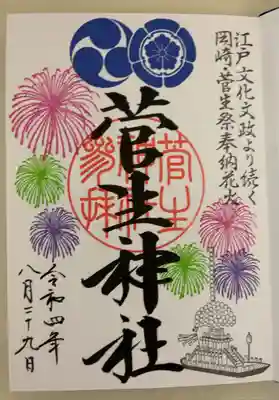 江戸文化文政より続く
岡崎・菅生祭奉納花火
菅生神社
令和四年
八月二十九日